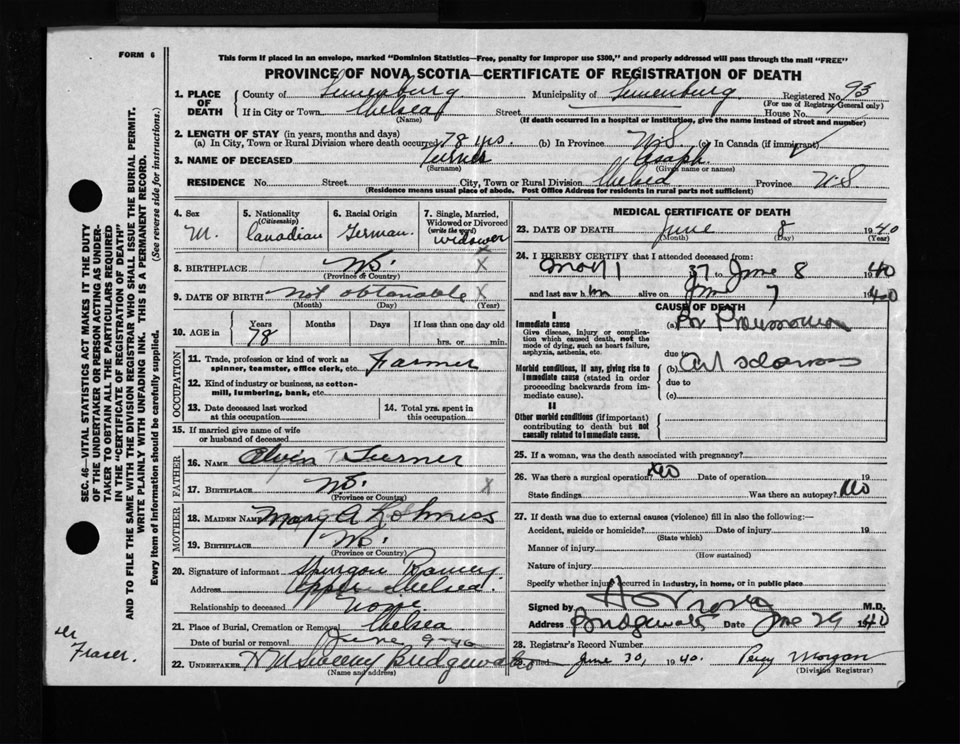 FORM 6
This form if placed in an envelope, marked "Dominion Statistics—Free, penalty for improper use $300," and properly addressed will pass through the mail "FREE"
PROVINCE OF NOVA SCOTIA—CERTIFICATE OF REGISTRATION OF DEATH
1. PLACE OF DEATH County of Lunenburg Municipality of Lunenburg Registered No. 93
(For use of Registrar General only)
If in City or Town Chelsea Street House No.
(Name) (If death occurred in a hospital or institution, give the name instead of street and number)
2. LENGTH OF STAY (in years, months and days)
(a) In City, Town or Rural Division where death occurred 78 yrs. (b) In Province N.S. (c) In Canada (if immigrant)
3. NAME OF DECEASED Turner Asaph
(Surname) (Given name or names)
RESIDENCE No. Street City, Town or Rural Division Chelsea Province N.S.
(Residence means usual place of abode. Post Office Address for residents in rural parts not sufficient)
4. Sex 5. Nationality 6. Racial Origin 7. Single, Married, Widowed or Divorced
(Citizenship) (write the word)
M. Canadian German Widower
8. BIRTHPLACE N.S. X
(Province or Country)
9. DATE OF BIRTH Not obtainable X
(Month) (Day) (Year)
10. AGE in Years Months Days If less than one day old
78 hrs. or min.
OCCUPATION
11. Trade, profession or kind of work as spinner, teamster, office clerk, etc. Farmer
12. Kind of industry or business, as cotton-mill, lumbering, bank, etc.
13. Date deceased last worked at this occupation 14. Total yrs. spent in this occupation
15. If married give name of wife or husband of deceased
FATHER
16. NAME Alvin Turner
17. BIRTHPLACE N.S. X
(Province or Country)
MOTHER
18. MAIDEN NAME Mary A
19. BIRTHPLACE N.S.
(Province or Country)
20. Signature of informant Spurgon
Address Upper Chelsea
Relationship to deceased None
21. Place of Burial, Cremation or Removal Chelsea
Date of burial or removal June 9-40
22. UNDERTAKER Sweeny Bridgewater
(Name and address)
MEDICAL CERTIFICATE OF DEATH
23. DATE OF DEATH June 8 1940
(Month) (Day) (Year)
24. I HEREBY CERTIFY that I attended deceased from:
37 to June 8 1940
and last saw him alive on June 7 1940
CAUSE OF DEATH
I
Immediate cause (a) Br Pneumonia
Give disease, injury or complication which caused death, not the mode of dying, such as heart failure, asphyxia, asthenia, etc.
due to
Morbid conditions, if any, giving rise to immediate cause (stated in order proceeding backwards from immediate cause). (b) Art
due to
(c)
II
Other morbid conditions (if important) contributing to death but not causally related to immediate cause.
25. If a woman, was the death associated with pregnancy?
26. Was there a surgical operation? No Date of operation 19
State findings Was there an autopsy? No
27. If death was due to external causes (violence) fill in also the following:—
Accident, suicide or homicide? Date of injury 19
(State which)
Manner of injury
(How sustained)
Nature of injury
Specify whether injury occurred in industry, in home, or in public place
Signed by M.D.
Address Bridgewater Date June 29 1940
28. Registrar's Record Number
Filed June 30, 1940. Percy Morgan
(Division Registrar)
SEC. 46—VITAL STATISTICS ACT MAKES IT THE DUTY
OF THE UNDERTAKER OR PERSON ACTING AS UNDER-
TAKER TO OBTAIN ALL THE PARTICULARS REQUIRED
IN THE "CERTIFICATE OF REGISTRATION OF DEATH"
AND TO FILE THE SAME WITH THE DIVISION REGISTRAR WHO SHALL ISSUE THE BURIAL PERMIT.
WRITE PLAINLY WITH UNFADING INK. THIS IS A PERMANENT RECORD.
Every item of information should be carefully supplied. (See reverse side for instructions.)
Dr
Fraser.